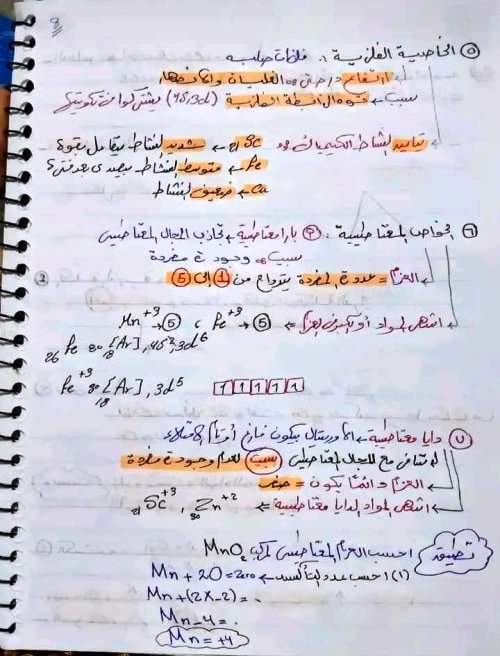 8
٥ الخاصية الفلزية : فلزات صلبه
ارتفاع درجتي الغليان والانصهار
بسبب ← قوة الرابطة الفلزية (4S, 3d) يشتركوا في تكوينها
تباين النشاط الكيميائى 21 Sc ← شديد النشاط يتفاعل بقوة
Fe ← متوسط النشاط
Cu ← ضعيف النشاط
٦ الخواص المغناطيسية : بارامغناطيسية ← تجاذب المجال المغناطيسى
بسبب وجود e مفردة
العزم = عدد e المفردة يتراوح من 1 إلى 5
اشهر المواد أو أكبر في العزم = Fe+3 → 5 ، Mn+3 → 5
26 Fe 80 18[Ar], 4S2, 3d6
Fe+3 80 18[Ar], 3d5 1 1 1 1 1
٧ دايا مغناطيسية ← الأوربيتال بيكون فارغ أو تام الامتلاء
تتنافر مع المجال المغناطيسى بسبب لعدم وجود e مفردة
العزم دائمًا يكون = صفر
اشهر المواد الدايا مغناطيسية = 21 Sc+3 , 30 Zn+2
تطبيق احسب العزم المغناطيسى لمركب MnO2
(١) احسب عدد التأكسد ← Mn + 2O = Zero
Mn + (2X-2) = ٠
Mn - 4 = ٠
Mn = +4